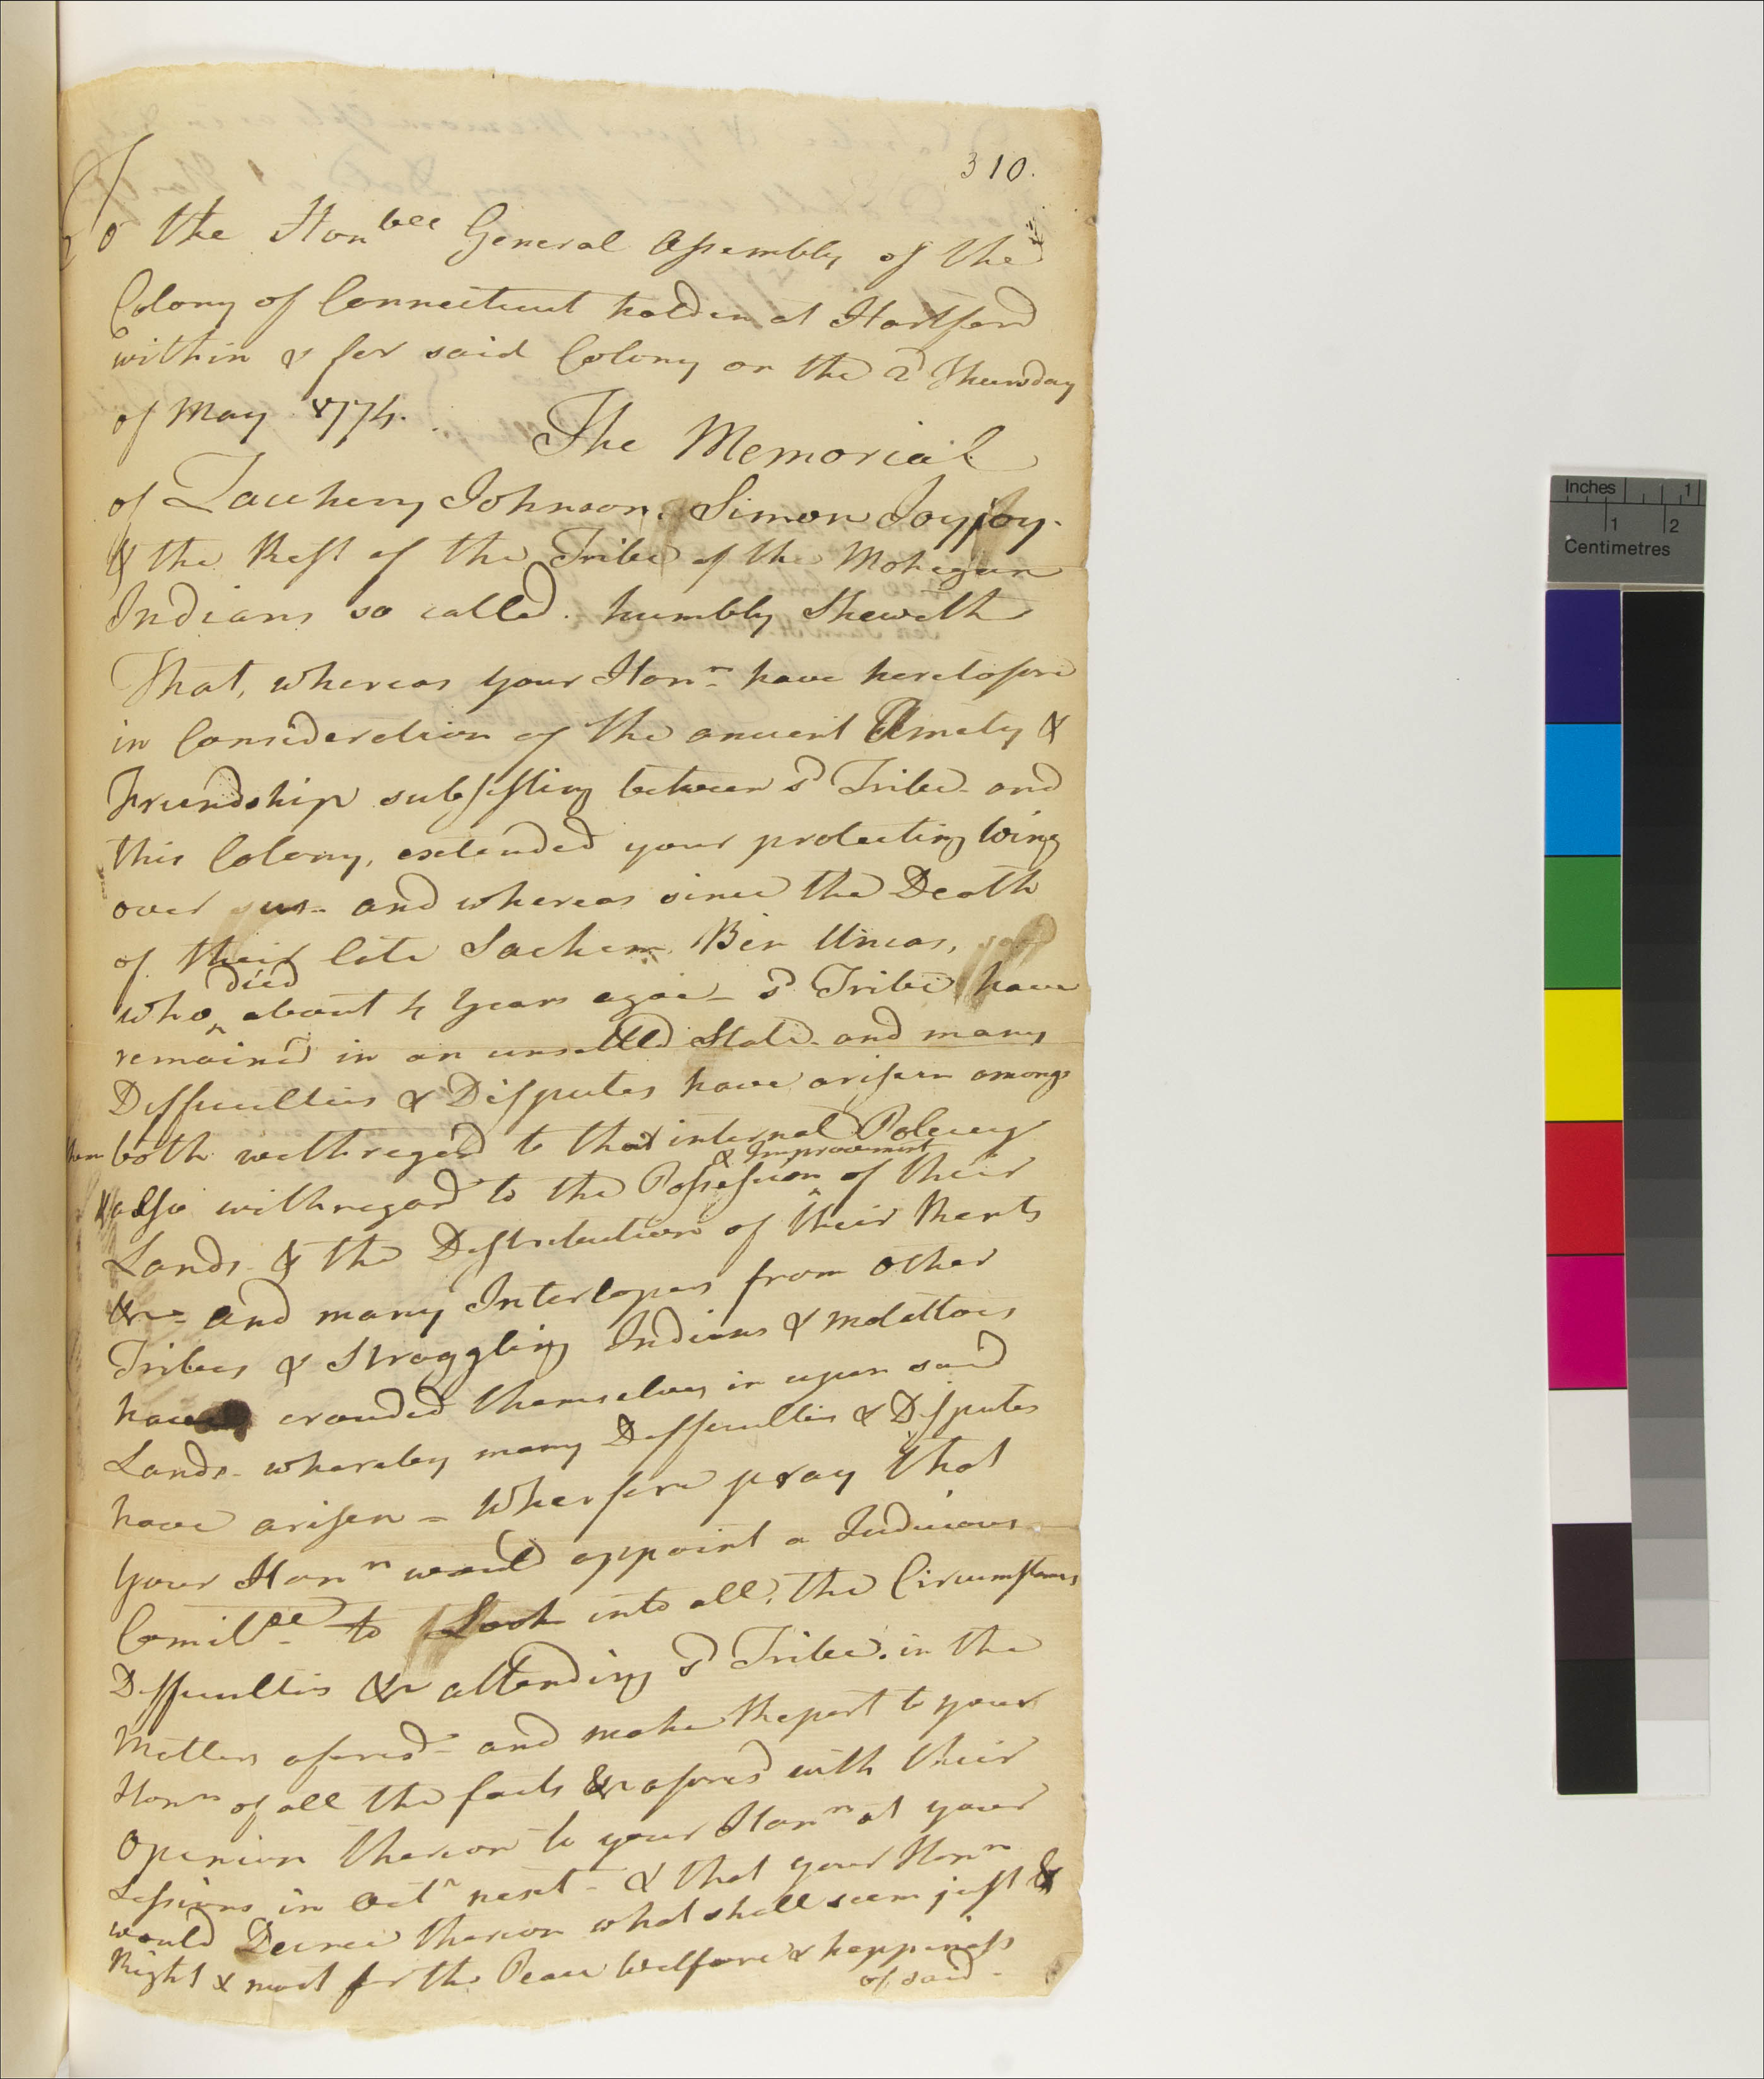 310.
To the Honble General Assembly of the
Colony of Connecticut holden at Hartford
within & for said Colony on the 2d Thursday
of May 1774. The Memorial
of Zachery Johnson, Simon Joyjoy.
& the Rest of the Tribe of the Mohegan
Indians so called. humbly Sheweth
That, whereas your Honrs have heretofore
in Consideration of the ancient Amety &
Friendship subsisting between sd Tribe and
this Colony, extended your protecting Wing
over us - and whereas since the Death
of their late Sachem, Ben Uncas,
died
who about 4 Years agoe - sd Tribe have
remained in an unsettled State. and many
Difficulties & Disputes have arisen among
them both with regard to that internal Policey
& Improvement
& also with regard to the Possession of their
Lands & the Distribution of their Rents
&c - and many Interlopers from other
Tribes & Straggling Indians & Molattoes
have crouded themselves in upon said
Lands - whereby many Difficulties & Disputes
have arisen = Wherfore pray that
Your Honrs would appoint a Judicious
Comittee to Look into all the Circumstances
Difficulties &c attending sd Tribe. in the
Matters aforesd - and make Report to your
Honrs of all the facts &c aforesd with their
Opinion thereon to your Honrs at your
Sessions in Octr next - & that your Honrs
would Decree thereon what shall seem just &
Right & most for the Peace Welfare & happiness
of said -
Inches 1
1 2
Centimetres